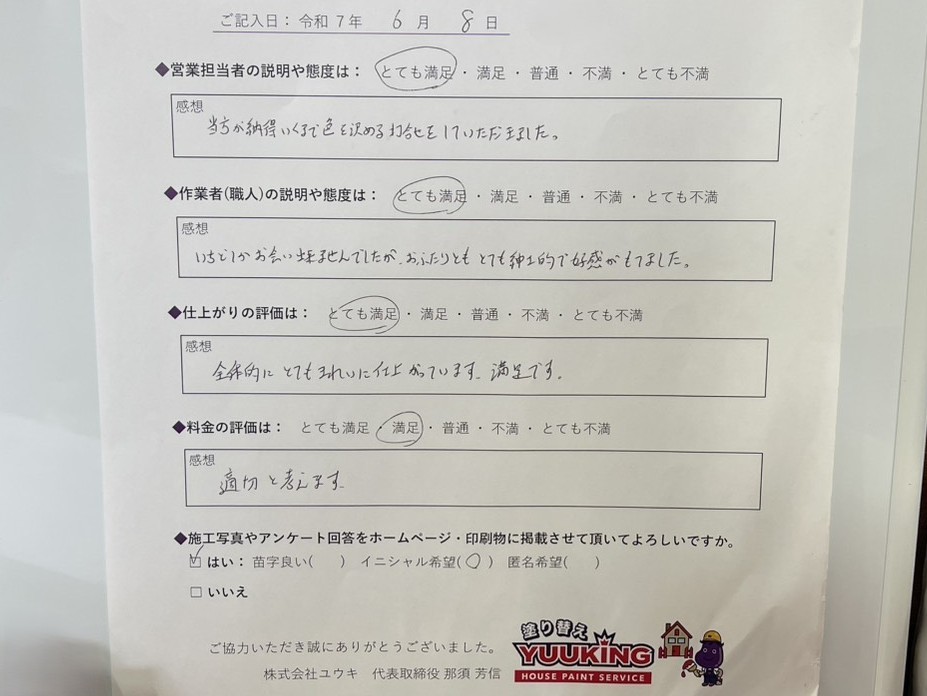 ご記入日：令和 7年 6月 8日
◆営業担当者の説明や態度は： とても満足 ・ 満足 ・ 普通 ・ 不満 ・ とても不満
感想
当方が納得いくまで色を決める打合せをしていただきました。
◆作業者(職人)の説明や態度は： とても満足 ・ 満足 ・ 普通 ・ 不満 ・ とても不満
感想
いちどしかお会い出来ませんでしたが、おふたりともとても紳士的で好感がもてました。
◆仕上がりの評価は： とても満足 ・ 満足 ・ 普通 ・ 不満 ・ とても不満
感想
全体的にとてもきれいに仕上がっています。満足です。
◆料金の評価は： とても満足 ・ 満足 ・ 普通 ・ 不満 ・ とても不満
感想
適切と考えます。
◆施工写真やアンケート回答をホームページ・印刷物に掲載させて頂いてよろしいですか。
☑ はい： 苗字良い( ) イニシャル希望(○) 匿名希望( )
□ いいえ
ご協力いただき誠にありがとうございました。
株式会社ユウキ 代表取締役 那須 芳信
塗り替え
YUUKING
HOUSE PAINT SERVICE